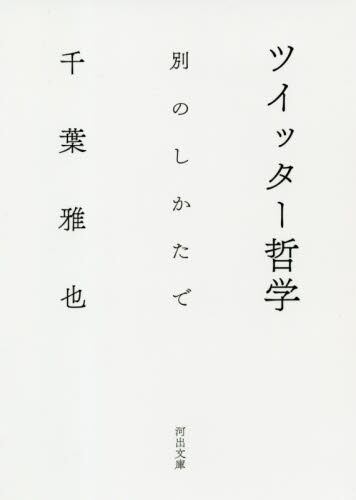 ツイッター哲学
別のしかたで
千葉雅也
河出文庫